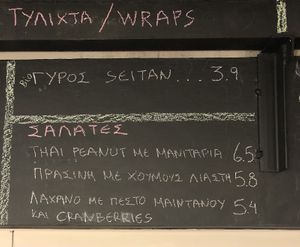 ΤΥΛΙΧΤΑ / WRAPS
Bio ΓΥΡΟΣ SEITAN... 3.9
ΣΑΛΑΤΕΣ
THAI PEANUT ΜΕ ΜΑΝΙΤΑΡΙΑ 6.5
ΠΡΑΣΙΝΗ ΜΕ ΧΟΥΜΟΥΣ ΛΙΑΣΤΗ 5.8
ΛΑΧΑΝΟ ΜΕ ΠΕΣΤΟ ΜΑΙΝΤΑΝΟΥ 5.4
ΚΑΙ CRANBERRIES